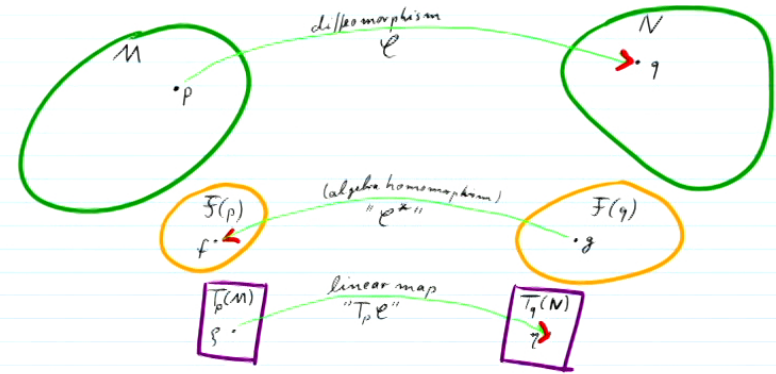 diffeomorphism
φ
M
N
p
q
(algebra homomorphism)
"φ*"
F(p)
F(q)
f
g
linear map
"Tₚφ"
Tₚ(M)
T_q(N)
ξ
η